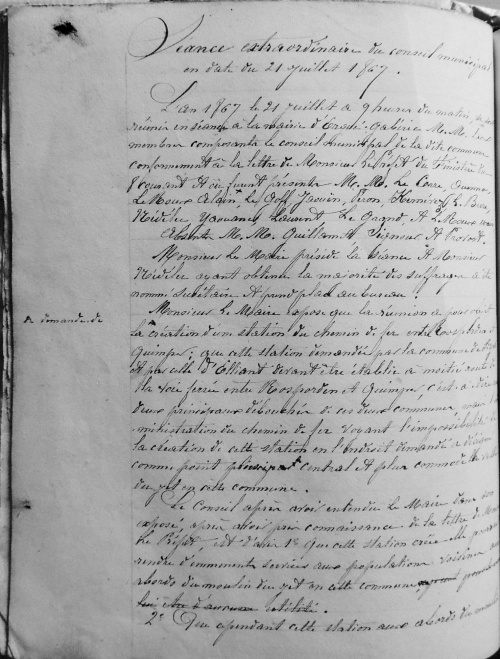 Séance extraordinaire du conseil municipal
en date du 21 Juillet 1867.
L'an 1867 le 21 Juillet a 9 heures du matin, se sont
réunis en séance à la mairie d'Ergué-Gabéric M.M. les
membres composants le conseil Municipal de la dite commune
conformément à la lettre de Monsieur le Préfet du Finistère
8 courant Et où furent présents M.M. Le Corre,
Le Moux Alain, Le Goff, Jaouen, Jean Kerninon,
Nédélec, Yaouanc, Laurent, Le Grand, Le Meur
Absents M.M. Quillamet Signour Et Provost.
Monsieur Le Maire préside la séance Et Monsieur
Nédélec ayant obtenu la majorité des suffrages a été
nommé secrétaire Et prend place au bureau.
Monsieur Le Maire expose que la réunion a pour objet
A demande de
la création d'une station du chemin de fer entre Rosporden et
Quimper; que cette station demandée par la commune
Et par celle d'Elliant devant être établie à moitié route
la voie ferrée entre Rosporden Et Quimper, c'est à dire
deux principaux débouchés de ces deux communes,
ministration du chemin de fer voyant l'impossibilité
la création de cette station en l'endroit demandé a désigné
comme point principal central Et plus commode
du yet en cette commune.
Le Conseil après avoir entendu Le Maire dans son
exposé, après avoir pris connaissance de la lettre de Mr
Le Préfet, est d'avis 1° Que cette station créée
rendre d'immenses services aux populations voisines
abords du moulin du yet en cette commune

2° Que cependant cette station aux abords du moulin